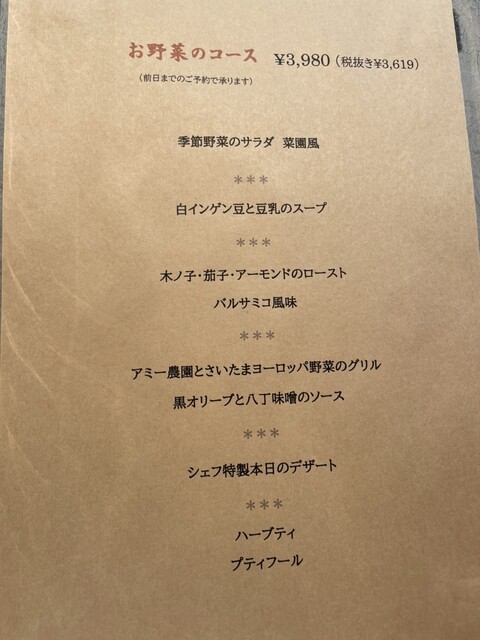 お野菜のコース ¥3,980（税抜き¥3,619）
（前日までのご予約で承ります）
季節野菜のサラダ 菜園風
＊＊＊
白インゲン豆と豆乳のスープ
＊＊＊
木ノ子・茄子・アーモンドのロースト
バルサミコ風味
＊＊＊
アミー農園とさいたまヨーロッパ野菜のグリル
黒オリーブと八丁味噌のソース
＊＊＊
シェフ特製本日のデザート
＊＊＊
ハーブティ
プティフール